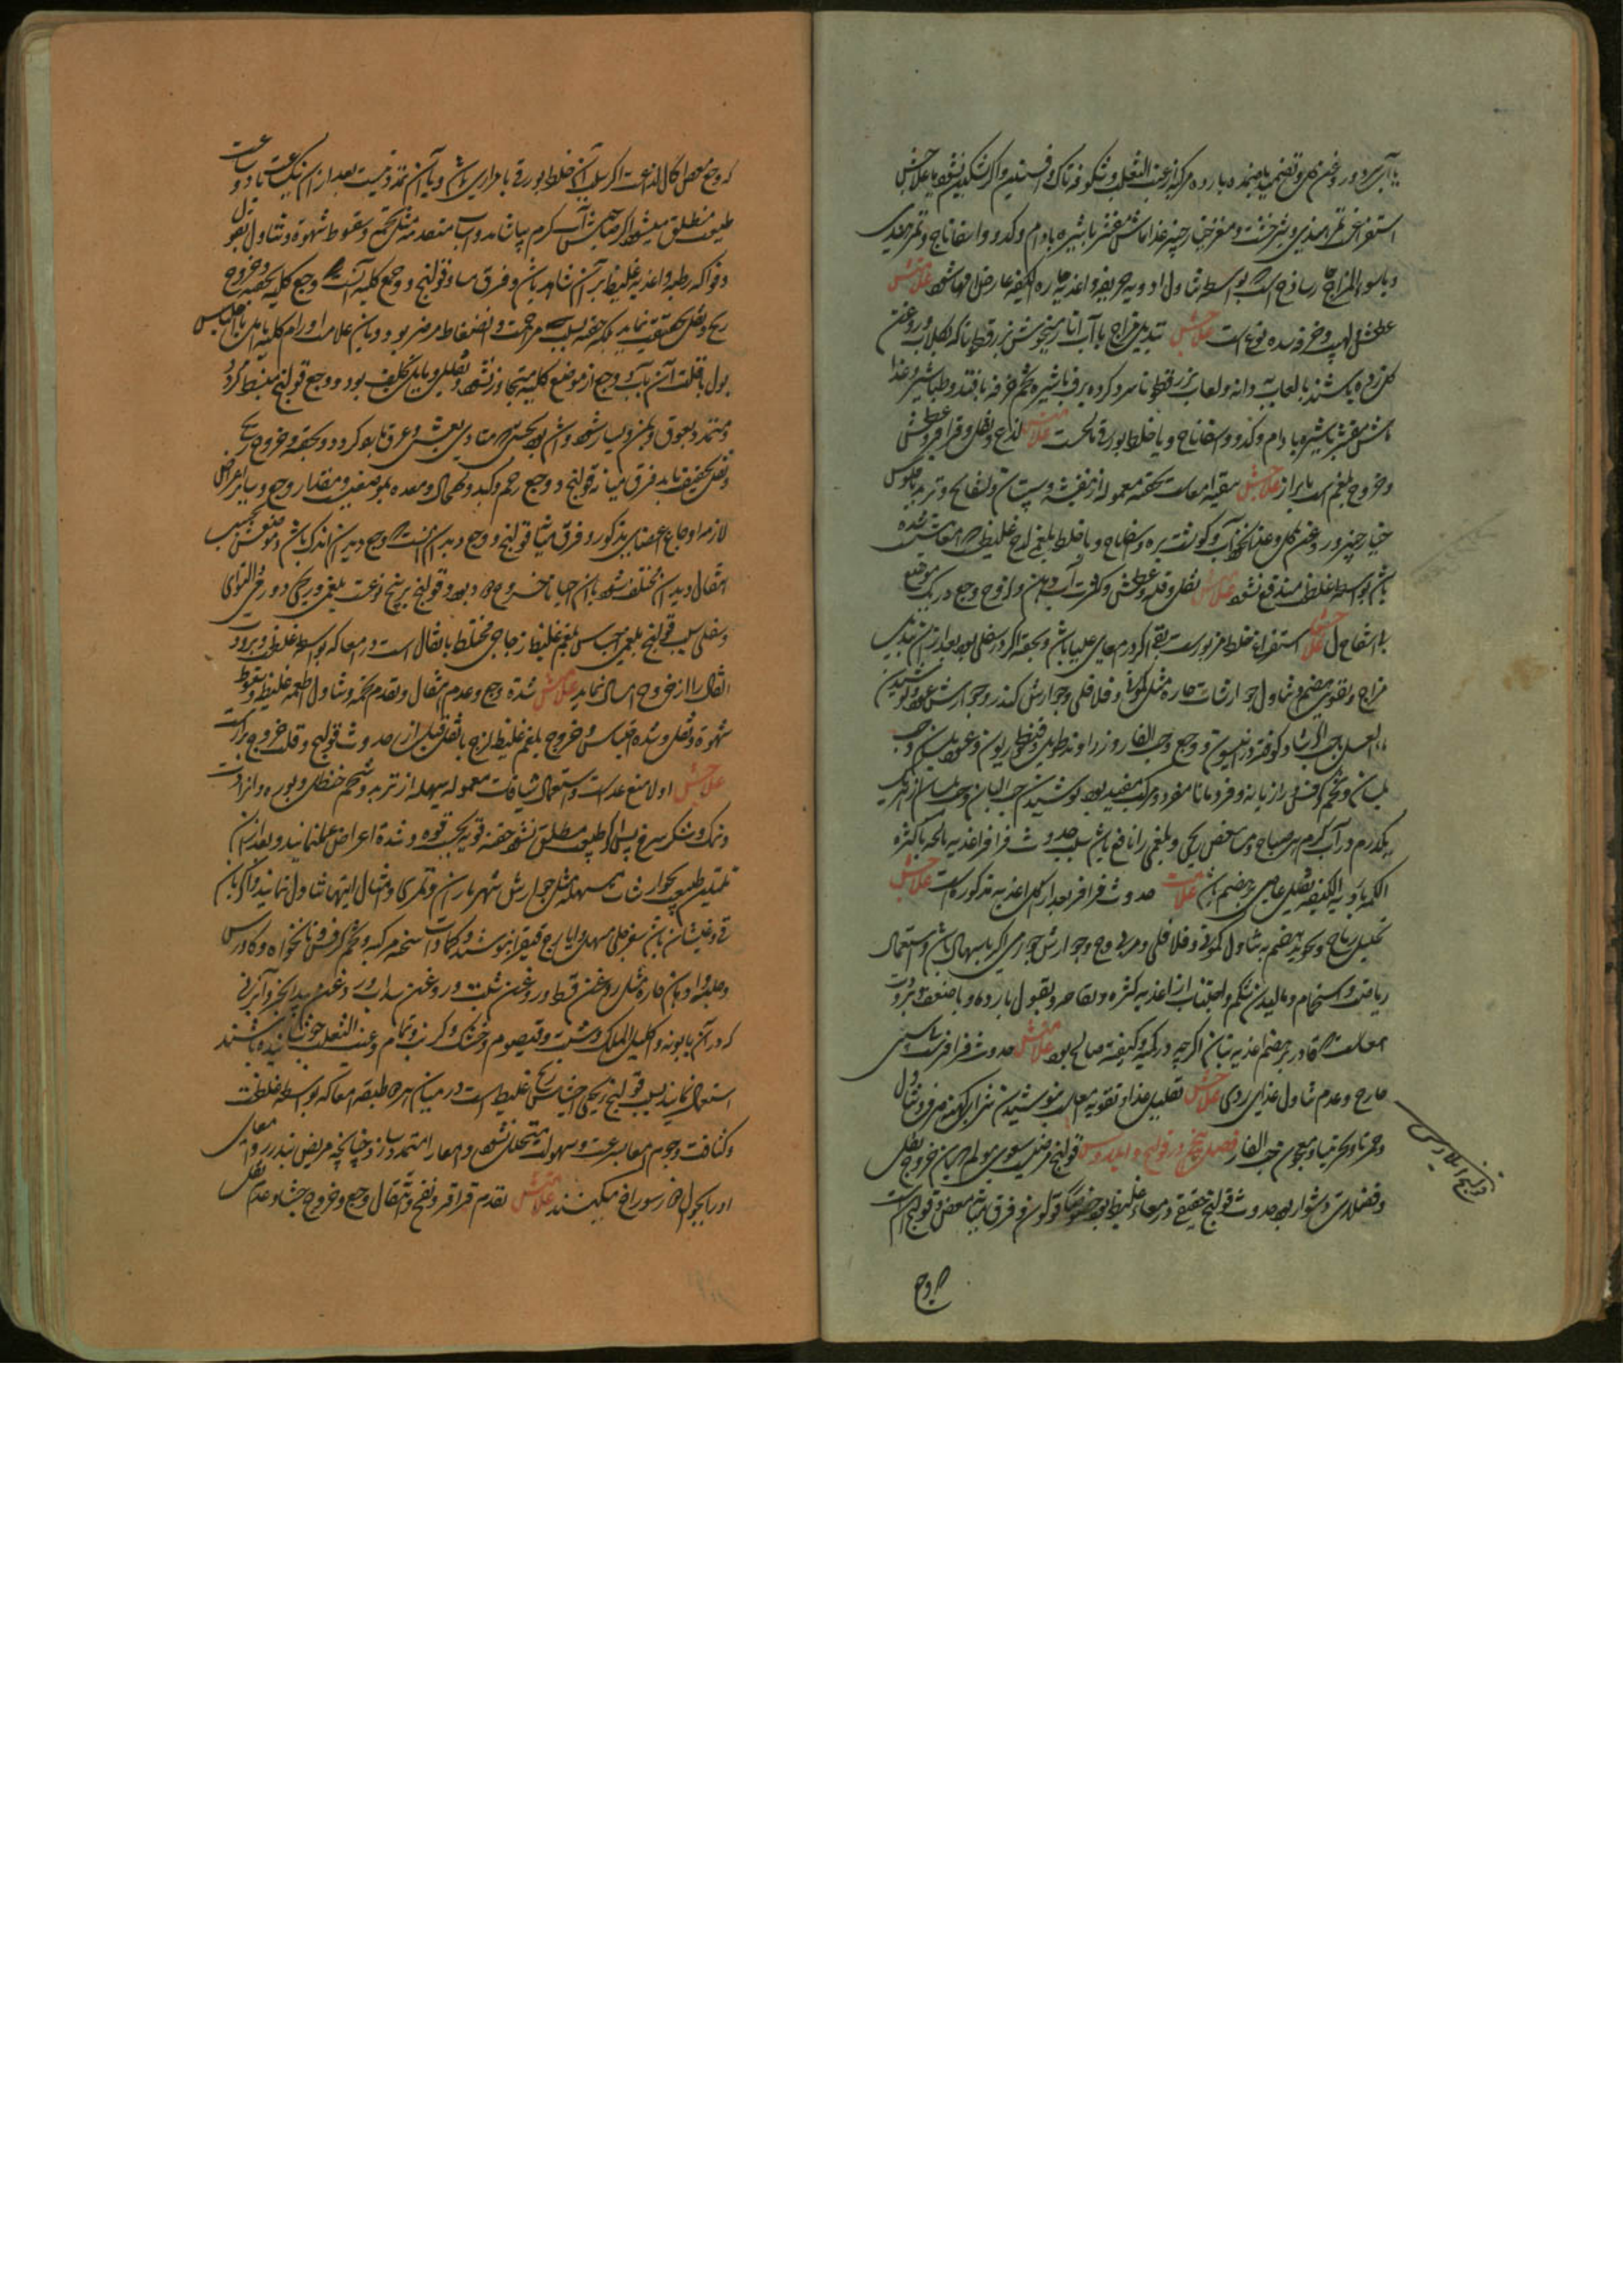 یا آبی و روغن گل و تضمید باضمده بارده مرکبه از عنب الثعلب و شکوفه تاک و افسنتین و اگر تسکین نشود علاجش
استفراغ تمر هندی و شیرخشت و مغز خیارچنبر غذا ماش مقشر با شیره بادام و کدو و اسفاناخ و تمر هندی
و یا سوء المزاج حار ساذج است بواسطه تناول ادویه حریفه و اغذیه حاره الکیفیه عارض امعا شود علامتش
عطش و لهیب و نوع است علاجش تبدیل مزاج باآب انار میخوش بزرقطونا که بگلاب و روغن
گل زده باشند یا لعاب به دانه و لعاب بزرقطونا سرد کرده ببرف با شیره تخم خرفه با قند و طباشیر و غذا
ماش مقشر با شیره بادام و کدو و اسفاناخ و یا خلط بورقی مالح است علامتش لذع و ثقل و قراقر و عطش
و خروج بلغم با براز علاجش تنقیه امعاست بحقنه معموله از بنفشه و سپستان و تربد و فلوس
خیارچنبر و روغن گل و غذا نخوداب و گوشت بره و اسفاناخ و یا خلط بلغمی لزج غلیظ در معا
باشد بواسطه غلظ مندفع نشود علامتش ثقل و قلة عطش و کثرت آب دهن و لزوم وجع در یک موضع
علاجش استفراغ خلط مزبور است بقی اگر در معای علیا باشد و بحقنه اگر در سفلی بود بعد از آن تبدیل
مزاج و تقویت هضم و تناول جوارشات حاره مثل کمونی و فلافلی و جوارش کندر و جوارش عود و نوشیدن
ماء العسل و حب الرشاد کوفته و انیسون و حب الغار و زراوند طویل و قنطوریون و عود بلسان و حب
بلسان و تخم کرفس و رازیانه و قردمانا مفرد و مرکب مفید بود نوشیدن حب البان و حب بلسان از هر یک
یکدرم در آب گرم هر صباح مغص ریحی و بلغمی را نافع باشد سبب حدوث قراقر اغذیه نافخه یا کثیره
الکمیه یا ردیه الکیفیه ثقیل عاصی بر هضم باشد علامت حدوث قراقر بعد از اکل اغذیه مذکوره است علاجش
تحلیل ریاح و تجوید هضم به تناول کمونی و فلافلی و مربی وج و جوارش خوزی اگر با اسهال باشد و استعمال
ریاضت و استحمام و مالیدن شکم و اجتناب از اغذیه کثیره و نفاخه و بقول بارده و یا ضعف و برودت
معاست که قادر بر هضم اغذیه نباشد اگرچه در کمیة و کیفیة صالح بود علامتش حدوث قراقر بی سببی
خارج و عدم تناول غذای ردی علاجش تقلیل غذا و تقویه معاست بنوشیدن شراب کهنه صرف و تناول
و سنجرنیا و معجون حب الغار فصل پنجم در قولنج و ایلاوس قولنج مرضیست معوی مولم که با آن خروج ثقل
و فضلات دشوار بود حدوث قولنج حقیقی در معاء غلیظ بود خصوصا قولون و فرق میان مغص و قولنج آنست
که وجع
قولنج ایلاوس
که وجع مغص اکال لذاعست اگر سبب آن خلط بورقی یا مراری باشد و با آن تمدد نیست بعد از آن یکساعت تا دو ساعت
طبیعت منطلق میشود اگر صاحبش آب گرم بیاشامد و اسباب متقدمه مثل تخم و سقوط شهوة و تناول بقول
و فواکه رطبه و اغذیه غلیظه بر آن شاهد باشد و فرق میان قولنج و وجع کلیه آنست که وجع کلیه بحقنه و خروج
ریح و ثقل تخفیف نیابد بلکه حقنه بسبب مزاحمت و انضغاط مضر بود و با آن علامات اورام کلیه باشد با احتباس
بول با قلت آن باشد و وجع از موضع کلیه متجاوز نشود و ثقل و بایک تخفیف بود و وجع قولنج منبسط گردد
و ممتد بفوق و بطن و یسار شود و اشد بود بحیثی که متادی بغشی و عرق بارد گردد و بحقنه و خروج ریح
و ثقل تخفیف یابد فرق میانه قولنج و وجع رحم و کبد و طحال و معده بموضعست و مقدار وجع و سایر اعراض
لازمه اوجاع اعضای مذکور و فرق میان قولنج و وجع دیدان آنست که وجع دیدان اندک باشد و موضعش بحسب
انتقال دیدان مختلف شود با آن احیانا خروج دود بود و قولنج بر پنج نوعست بلغمی و ریحی و ورمی و التوای
و ثفلی سبب قولنج بلغمی احتباس بلغم غلیظ زجاجی مختلط باثفال است در معا که بواسطه غلظ و برودت
اثفال را از خروج امساک نماید علامتش شدة وجع و عدم انتقال و تقدم تخمه و تناول اطعمه غلیظه و سقوط
شهوة و ثقل و شدة احتباس و خروج بلغم غلیظ لزج با ثقل قبل از حدوث قولنج و قلة خروج براز است
علاجش اولا منع غذاست و استعمال شیافات معموله مسهله از تربد و شحم حنظل و بوره و انزروت
و نمک و شکر سرخ پس اگر طبیعت منطلق نشود حقنه قویه بحسب قوه و شدة اعراض عمل نمایند و بعد از آن
تلیین طبیعت بجوارشات مسهله مثل جوارش شهریاران و تمری و امثال اینها تناول نمایند و اگر با آن
قی و غثیان باشد سفرجلی مسهل و ایارج فیقرا بنوشند و کمادات سخنه مرکبه و تخم کرفس و نانخواه و گاورس
و حلبه و ادهان حاره مثل روغن قسط و روغن شبت و روغن سداب و روغن بیدانجیر و آبزنی
که در آن بابونه و اکلیل الملک و شبت و قیصوم و خسک و کرنب و نمام و عنب الثعلب جوشانیده باشند
استعمال نمایند سبب قولنج ریحی احتباس ریحی غلیظ است در میان هر دو طبقه معا که بواسطه غلظت
و کثافت جرم معا بسرعت و سهولت متحلل نشود و امعا را متمدد سازد چنانچه مریض پندارد امعای
او را بجوال دوز سوراخ میکنند علامتش تقدم قراقر و نفخ و انتقال وجع و خروج جشا و عدم ثقل